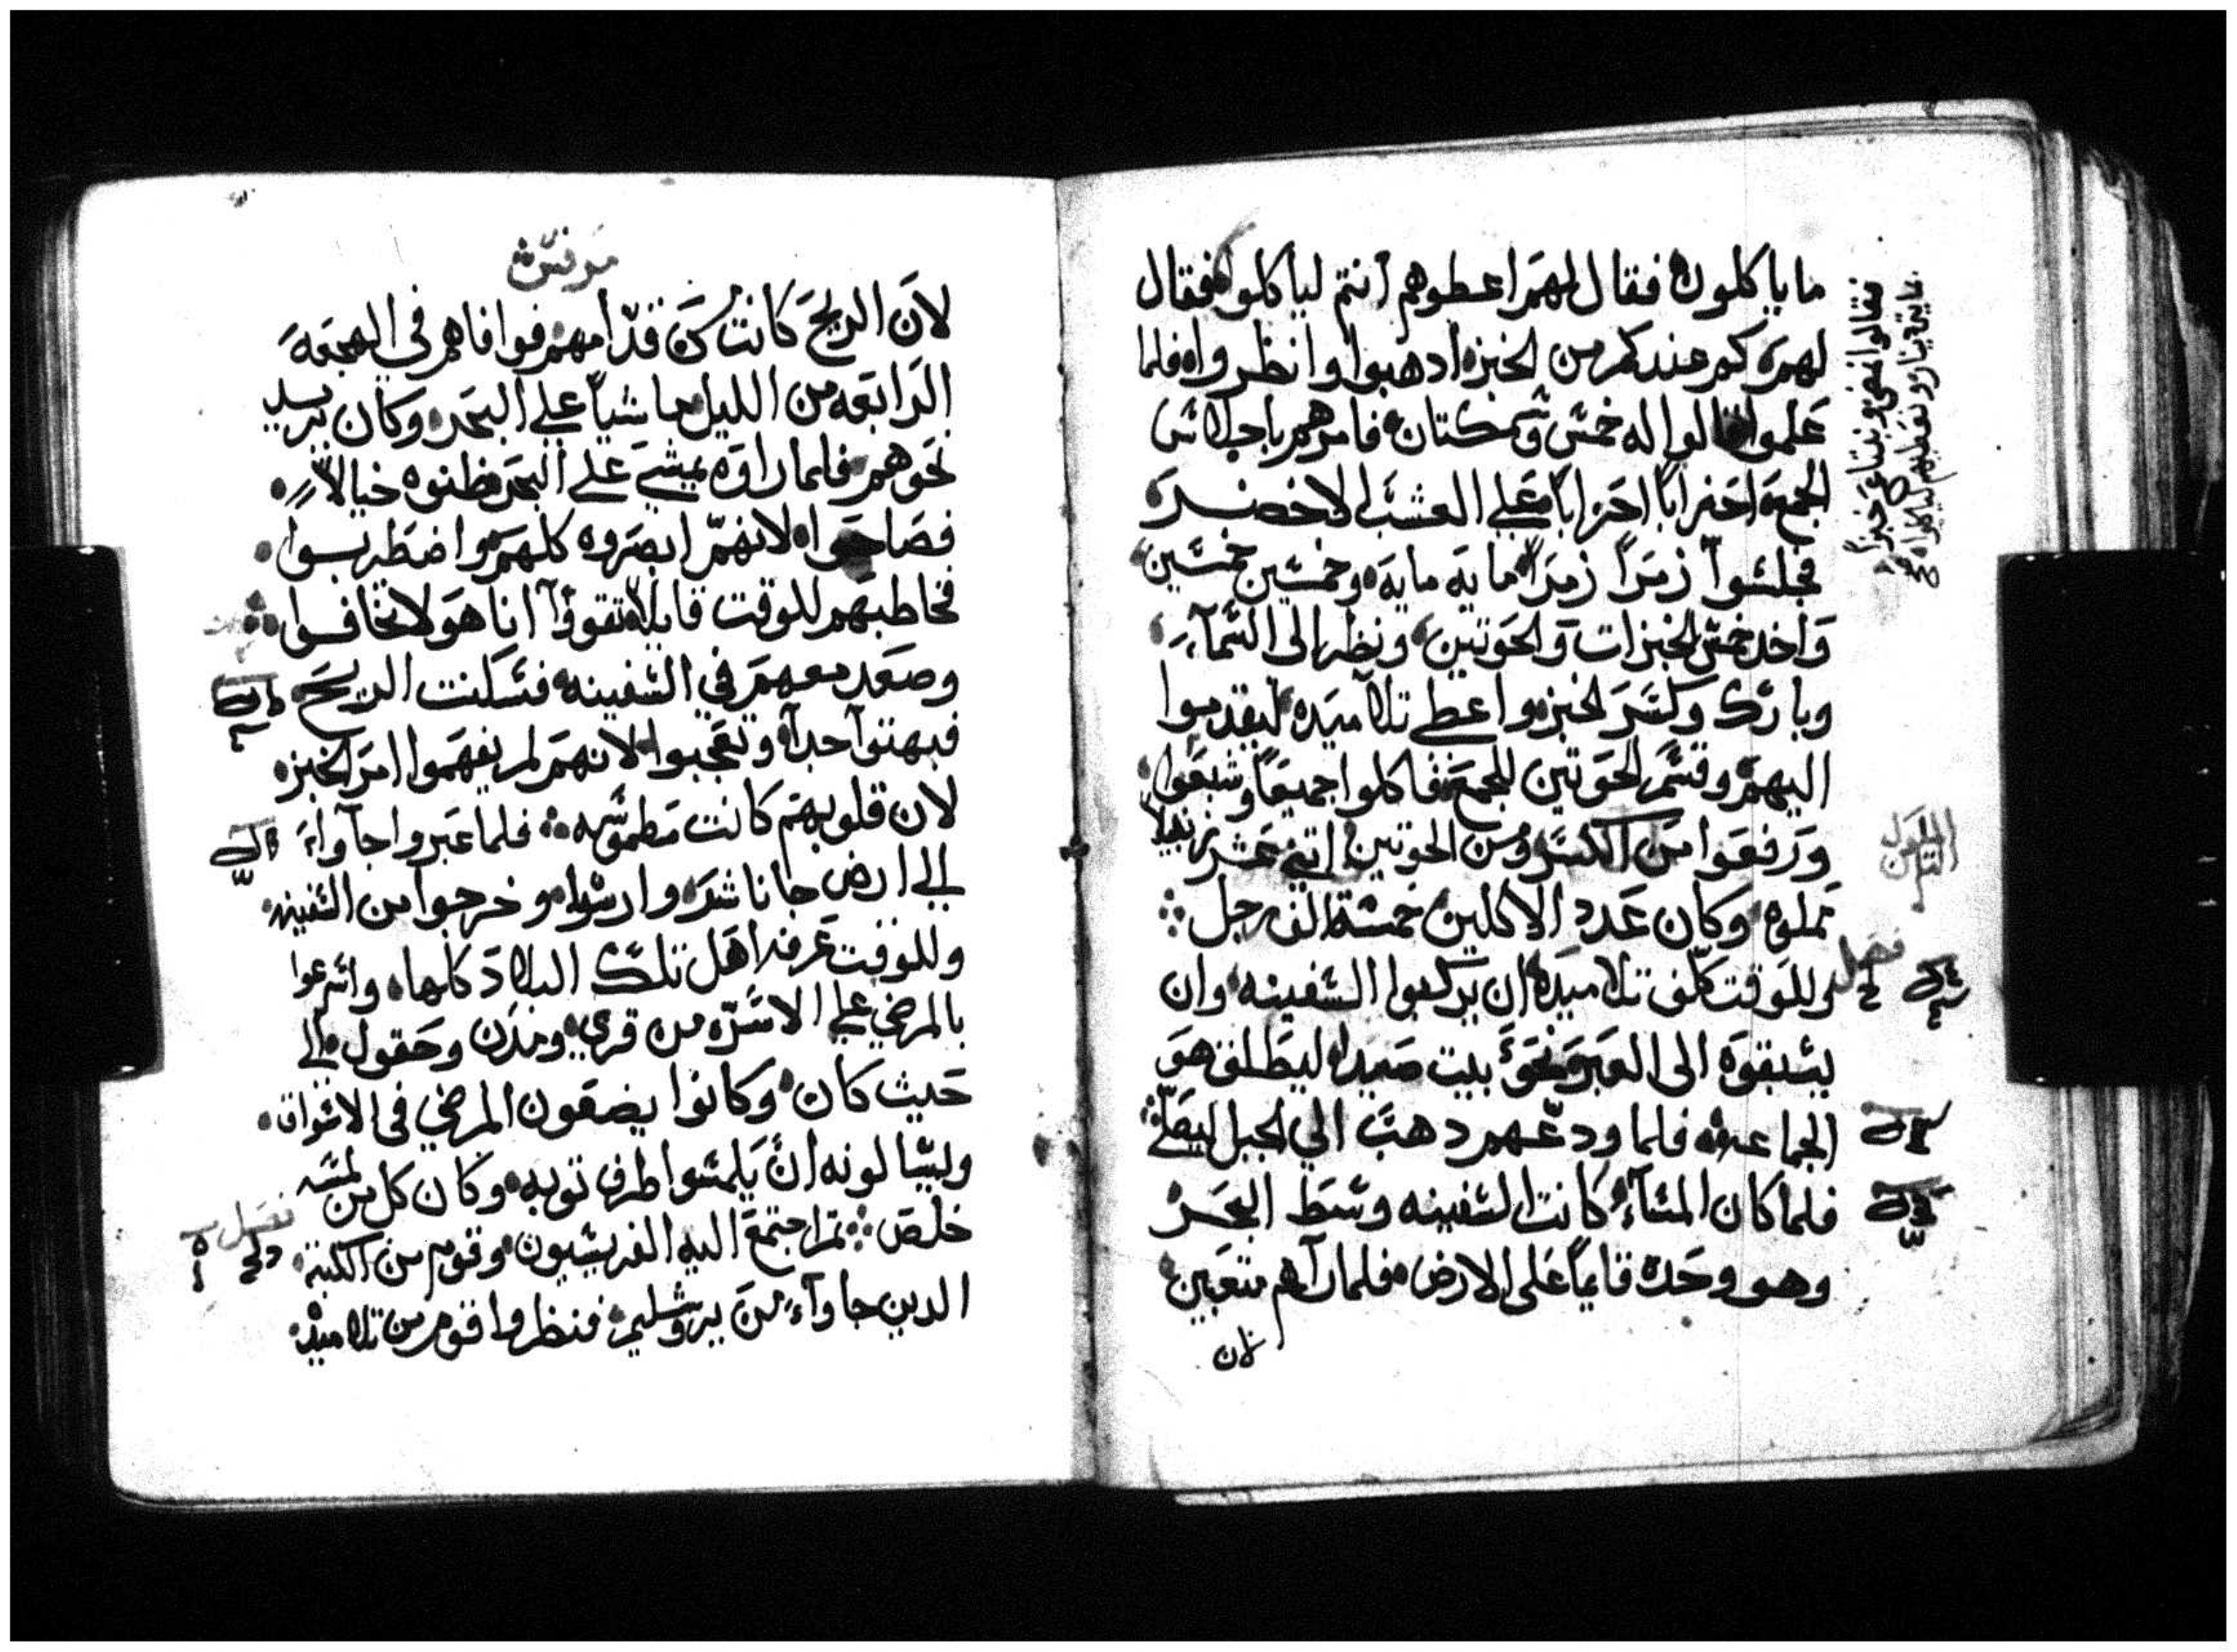 ما ياكلون فقال لهم اعطوهم أنتم لياكلوا فقال
لهم كم عندكم من الخبز ادهبوا وانظروا فلما
علموا قالوا له خمس وسمكتان فامرهم باجلاس
الجمع احزاباً احزاباً علي العشب الاخضر
فجلسوا زمراً زمراً مايه مايه وخمسين خمسين
واخد خمس الخبزات والحوتين ونظر الى السمآء
وبارك وكسر الخبز واعطي تلاميده ليقدموا
اليهم وقسم الحوتين للجمع فاكلوا جميعاً وشبعوا
ورفعوا من الكسر ومن الحوتين اتني عشر زنبيلاً
مملوه وكان عدد الاكلين خمسة الف رجل
وللوقت كلف تلاميده ان يركبوا السفينه وان
يسبقوه الى العبر نحو بيت صيدا ليطلق هو
الجماعه فلما ودعهم دهب الي الجبل ليصلي
فلما كان المسآء كانت السفينه وسط البحر
وهو وحده قايماً على الارض فلما رآهم متعبين
لان
فقالوا نمضي ونبتاع خبزاً
دينار ونعطيهم لياكلوا
فصل
مرقس
لأن الريح كانت قدامهم فوافاهم في الهجعه
الرابعه من الليل ماشياً علي البحر وكان يريد
نحوهم فلما راوه يمشي علي البحر ظنوه خيالاً
فصاحوا لانهم ابصروه كلهم واضطربوا
فخاطبهم للوقت قايلاً تقووآ انا هو لا تخافوا
وصعد معهم في السفينه فسكنت الريح
فبهتوآ جداً وتعجبوا لانهم لم يفهموا امر الخبز
لان قلوبهم كانت مطموسه فلما عبروا جآوا
الي ارض جاناشر وارسوا وخرجوا من السفينه
وللوقت عرفه اهل تلك البلاد كلها واسرعوا
بالمرضي علي الاسره من قري ومدن وحقول الي
حيث كان وكانوا يضعون المرضي في الاسواق
ويسالونه ان يلمسوا طرف توبه وكان كل من لمسه
خلص ثم اجتمع اليه الفريسيون وقوم من الكتبه
الدين جاوآ من يروشليم فنظروا قوم من تلاميده
فصل